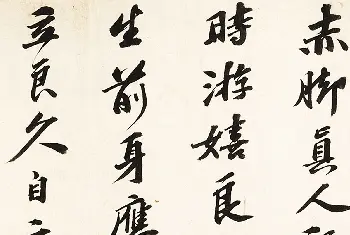 赤脚真人
時游嬉良
生前身應
立良久自